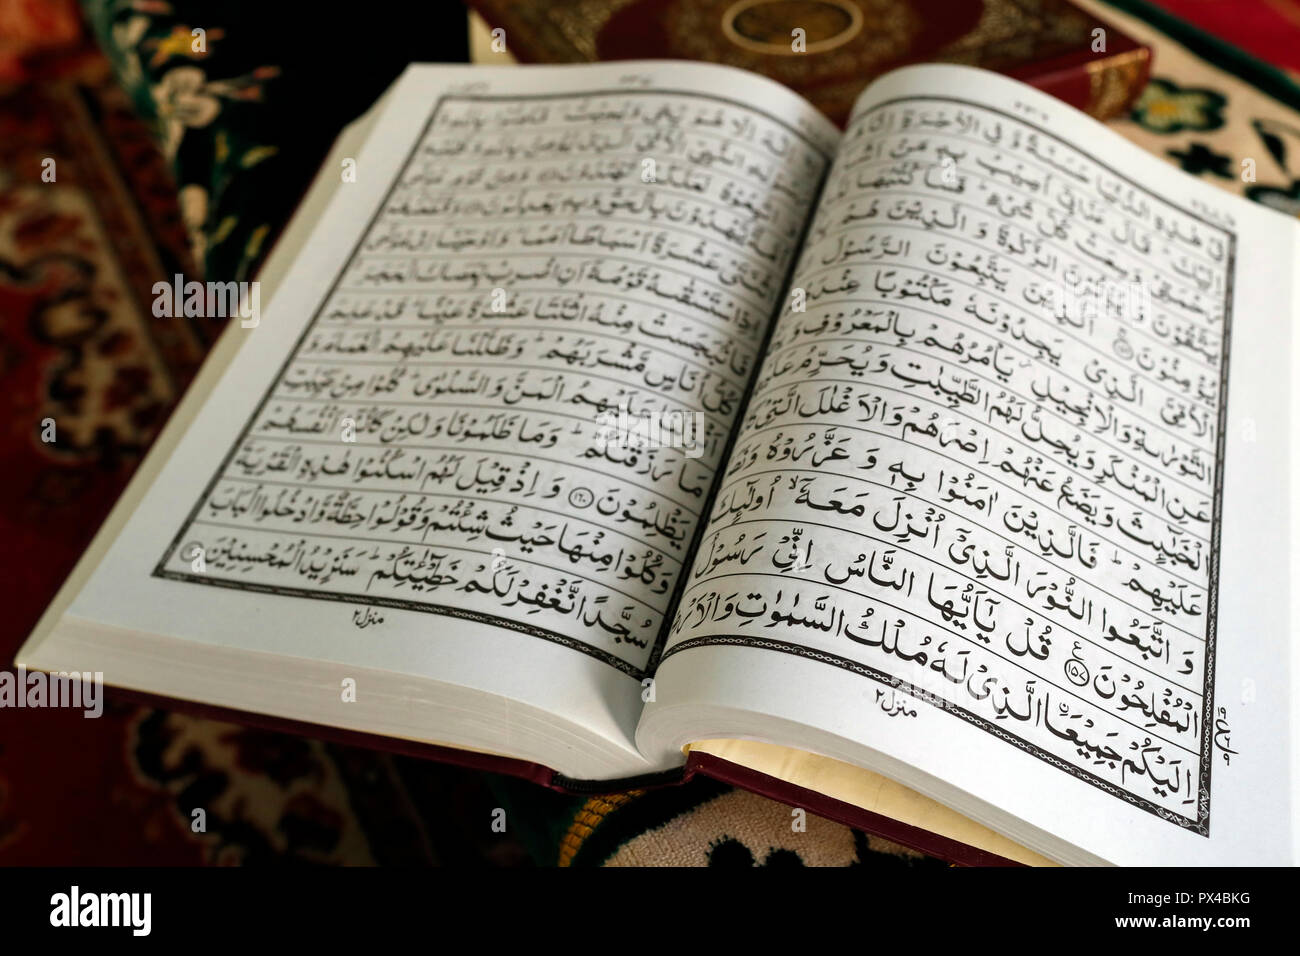 فِيْ هٰذِهِ الدُّنْيَا حَسَنَةً وَّفِي الْاٰخِرَةِ اِنَّا
اِلَيْكَ ؕ قَالَ عَذَابِيْۤ اُصِيْبُ بِهٖ مَنْ
رَحْمَتِيْ وَسِعَتْ كُلَّ شَيْءٍ ؕ فَسَاَكْتُبُهَا
يَتَّقُوْنَ وَيُؤْتُوْنَ الزَّكٰوةَ وَ الَّذِيْنَ هُمْ
يُؤْمِنُوْنَ ﴿۱۵۶﴾ اَلَّذِيْنَ يَتَّبِعُوْنَ الرَّسُوْلَ
الْاُمِّيَّ الَّذِيْ يَجِدُوْنَهٗ مَكْتُوْبًا عِنْدَ
التَّوْرٰىةِ وَالْاِنْجِيْلِ ؗ يَاْمُرُهُمْ بِالْمَعْرُوْفِ وَ
عَنِ الْمُنْكَرِ وَيُحِلُّ لَهُمُ الطَّيِّبٰتِ وَيُحَرِّمُ
الْخَبٰٓئِثَ وَيَضَعُ عَنْهُمْ اِصْرَهُمْ وَالْاَغْلٰلَ الَّتِيْ
عَلَيْهِمْ ؕ فَالَّذِيْنَ اٰمَنُوْا بِهٖ وَ عَزَّرُوْهُ وَ
وَ اتَّبَعُوا النُّوْرَ الَّذِيْۤ اُنْزِلَ مَعَهٗۤ ۙ اُولٰٓئِكَ
الْمُفْلِحُوْنَ ﴿۱۵۷﴾ ع قُلْ يٰۤاَيُّهَا النَّاسُ اِنِّيْ رَسُوْلُ
اِلَيْكُمْ جَمِيْعَا ۨ الَّذِيْ لَهٗ مُلْكُ السَّمٰوٰتِ وَالْاَرْ
منزل ۲
اِلٰهَ اِلَّا هُوَ يُحْيٖ وَيُمِيْتُ ۪ فَاٰمِنُوْا بِاللّٰهِ
النَّبِيِّ الْاُمِّيِّ الَّذِيْ يُؤْمِنُ بِاللّٰهِ وَكَلِمٰتِهٖ
اتَّبِعُوْهُ لَعَلَّكُمْ تَهْتَدُوْنَ ﴿۱۵۸﴾ وَمِنْ قَوْمِ مُوْسٰۤى
اُمَّةٌ يَّهْدُوْنَ بِالْحَقِّ وَبِهٖ يَعْدِلُوْنَ ﴿۱۵۹﴾ وَقَطَّعْنٰهُمُ
اثْنَتَيْ عَشْرَةَ اَسْبَاطًا اُمَمًا ؕ وَاَوْحَيْنَاۤ اِلٰى مُوْسٰۤى
اِذِ اسْتَسْقٰىهُ قَوْمُهٗۤ اَنِ اضْرِبْ بِّعَصَاكَ الْحَجَرَ ۚ
فَانْۢبَجَسَتْ مِنْهُ اثْنَتَا عَشْرَةَ عَيْنًا ؕ قَدْ عَلِمَ
كُلُّ اُنَاسٍ مَّشْرَبَهُمْ ؕ وَظَلَّلْنَا عَلَيْهِمُ الْغَمَامَ وَ
اَنْزَلْنَا عَلَيْهِمُ الْمَنَّ وَ السَّلْوٰى ؕ كُلُوْا مِنْ طَيِّبٰتِ
مَا رَزَقْنٰكُمْ ؕ وَمَا ظَلَمُوْنَا وَلٰكِنْ كَانُوْۤا اَنْفُسَهُمْ
يَظْلِمُوْنَ ﴿۱۶۰﴾ وَ اِذْ قِيْلَ لَهُمُ اسْكُنُوْا هٰذِهِ الْقَرْيَةَ
وَكُلُوْا مِنْهَا حَيْثُ شِئْتُمْ وَقُوْلُوْا حِطَّةٌ وَّادْخُلُوا الْبَابَ
سُجَّدًا نَّغْفِرْ لَكُمْ خَطِيْٓئٰتِكُمْ ؕ سَنَزِيْدُ الْمُحْسِنِيْنَ
منزل ۲
alamy
Image ID: PX4BKG
www.alamy.com